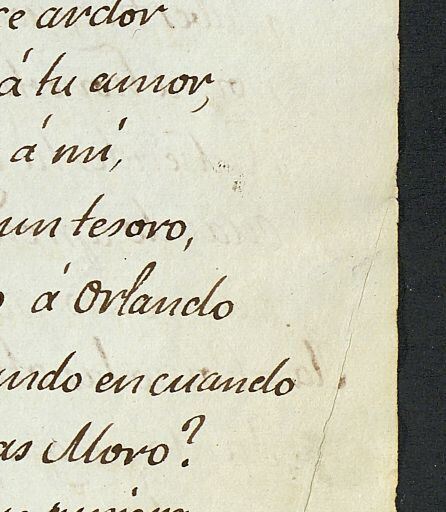 ardor
á tu amor,
á mí,
un tesoro,
á Orlando
en cuando
Moro?